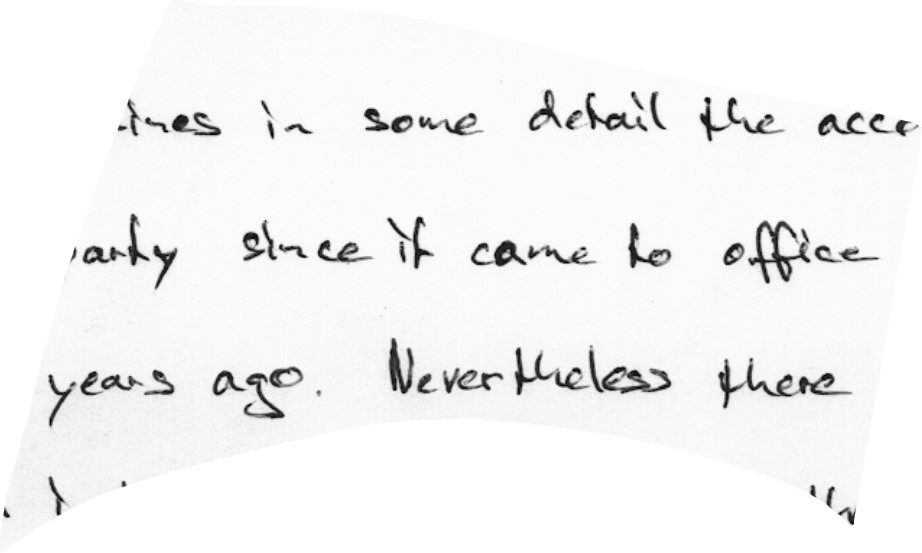 in some detail the
since it came to office
years ago. Nevertheless there